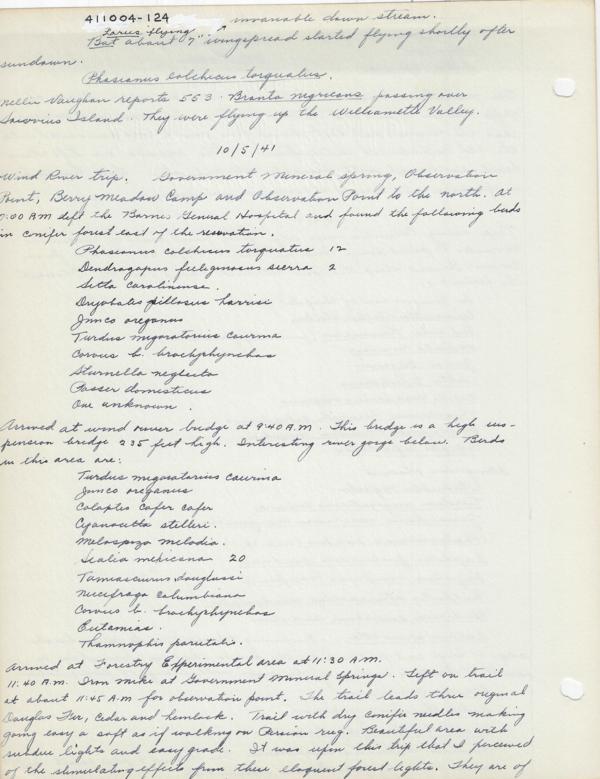 411004-124
invariable down stream.
Larus flying
Bat about 7" wingspread started flying shortly after
sundown.
Phasianus colchicus torquatus.
Nellie Vaughan reports 553 Branta nigricans passing over
Sauvies Island. They were flying up the Willamette Valley.
10/5/41
Wind River trip. Government Mineral spring, Observation
Point, Berry Meadow Camp and Observation Point to the north. At
7:00 AM left the Barnes General Hospital and found the following birds
in conifer forest east of the reservation.
Phasianus colchicus torquatus 12
Dendragapus fuliginosus sierra 2
Sitta carolinense.
Dryobates pillosus harrisi
Junco oreganus
Turdus migoratorius caurina
Corvus b. brachyrhynchos
Sturnella neglecta
Passer domesticus
One unknown.
Arrived at wind river bridge at 9:40 A.M. This bridge is a high sus-
pension bridge 235 feet high. Interesting river gorge below. Birds
in this area are:
Turdus migoratorius caurina
Junco oreganus
Colaptes cafer cafer
Cyanocitta stelleri.
Melospiza melodia.
Sealia mexicana 20
Tamiascurus douglassi
Nucifraga columbiana
Corvus b. brachyrhynchos
Eutamias.
Thamnophis parietalis.
Arrived at Forestry Experimental area at 11:30 A.M.
11:40 A.M. Iron Mike at Government Mineral Springs. Left on trail
at about 11:45 A.M for observation point. The trail leads thru original
Douglas Fir, Cedar and hemlock. Trail with dry conifer needles making
going easy & soft as if walking on Persian rug. Beautiful area with
subdue lights and easy grade. It was upon this trip that I perceived
of the stimulating effects from these eloquent forest lights. They are of